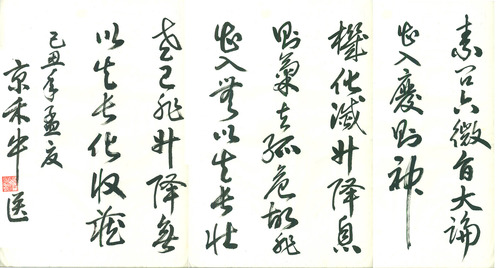 素问六微旨大論
出入廢则神
機化滅升降息
则氣立孤危故非
出入無以生长壮
老已非升降無
以生长化收藏
己丑年孟夏
京禾牛